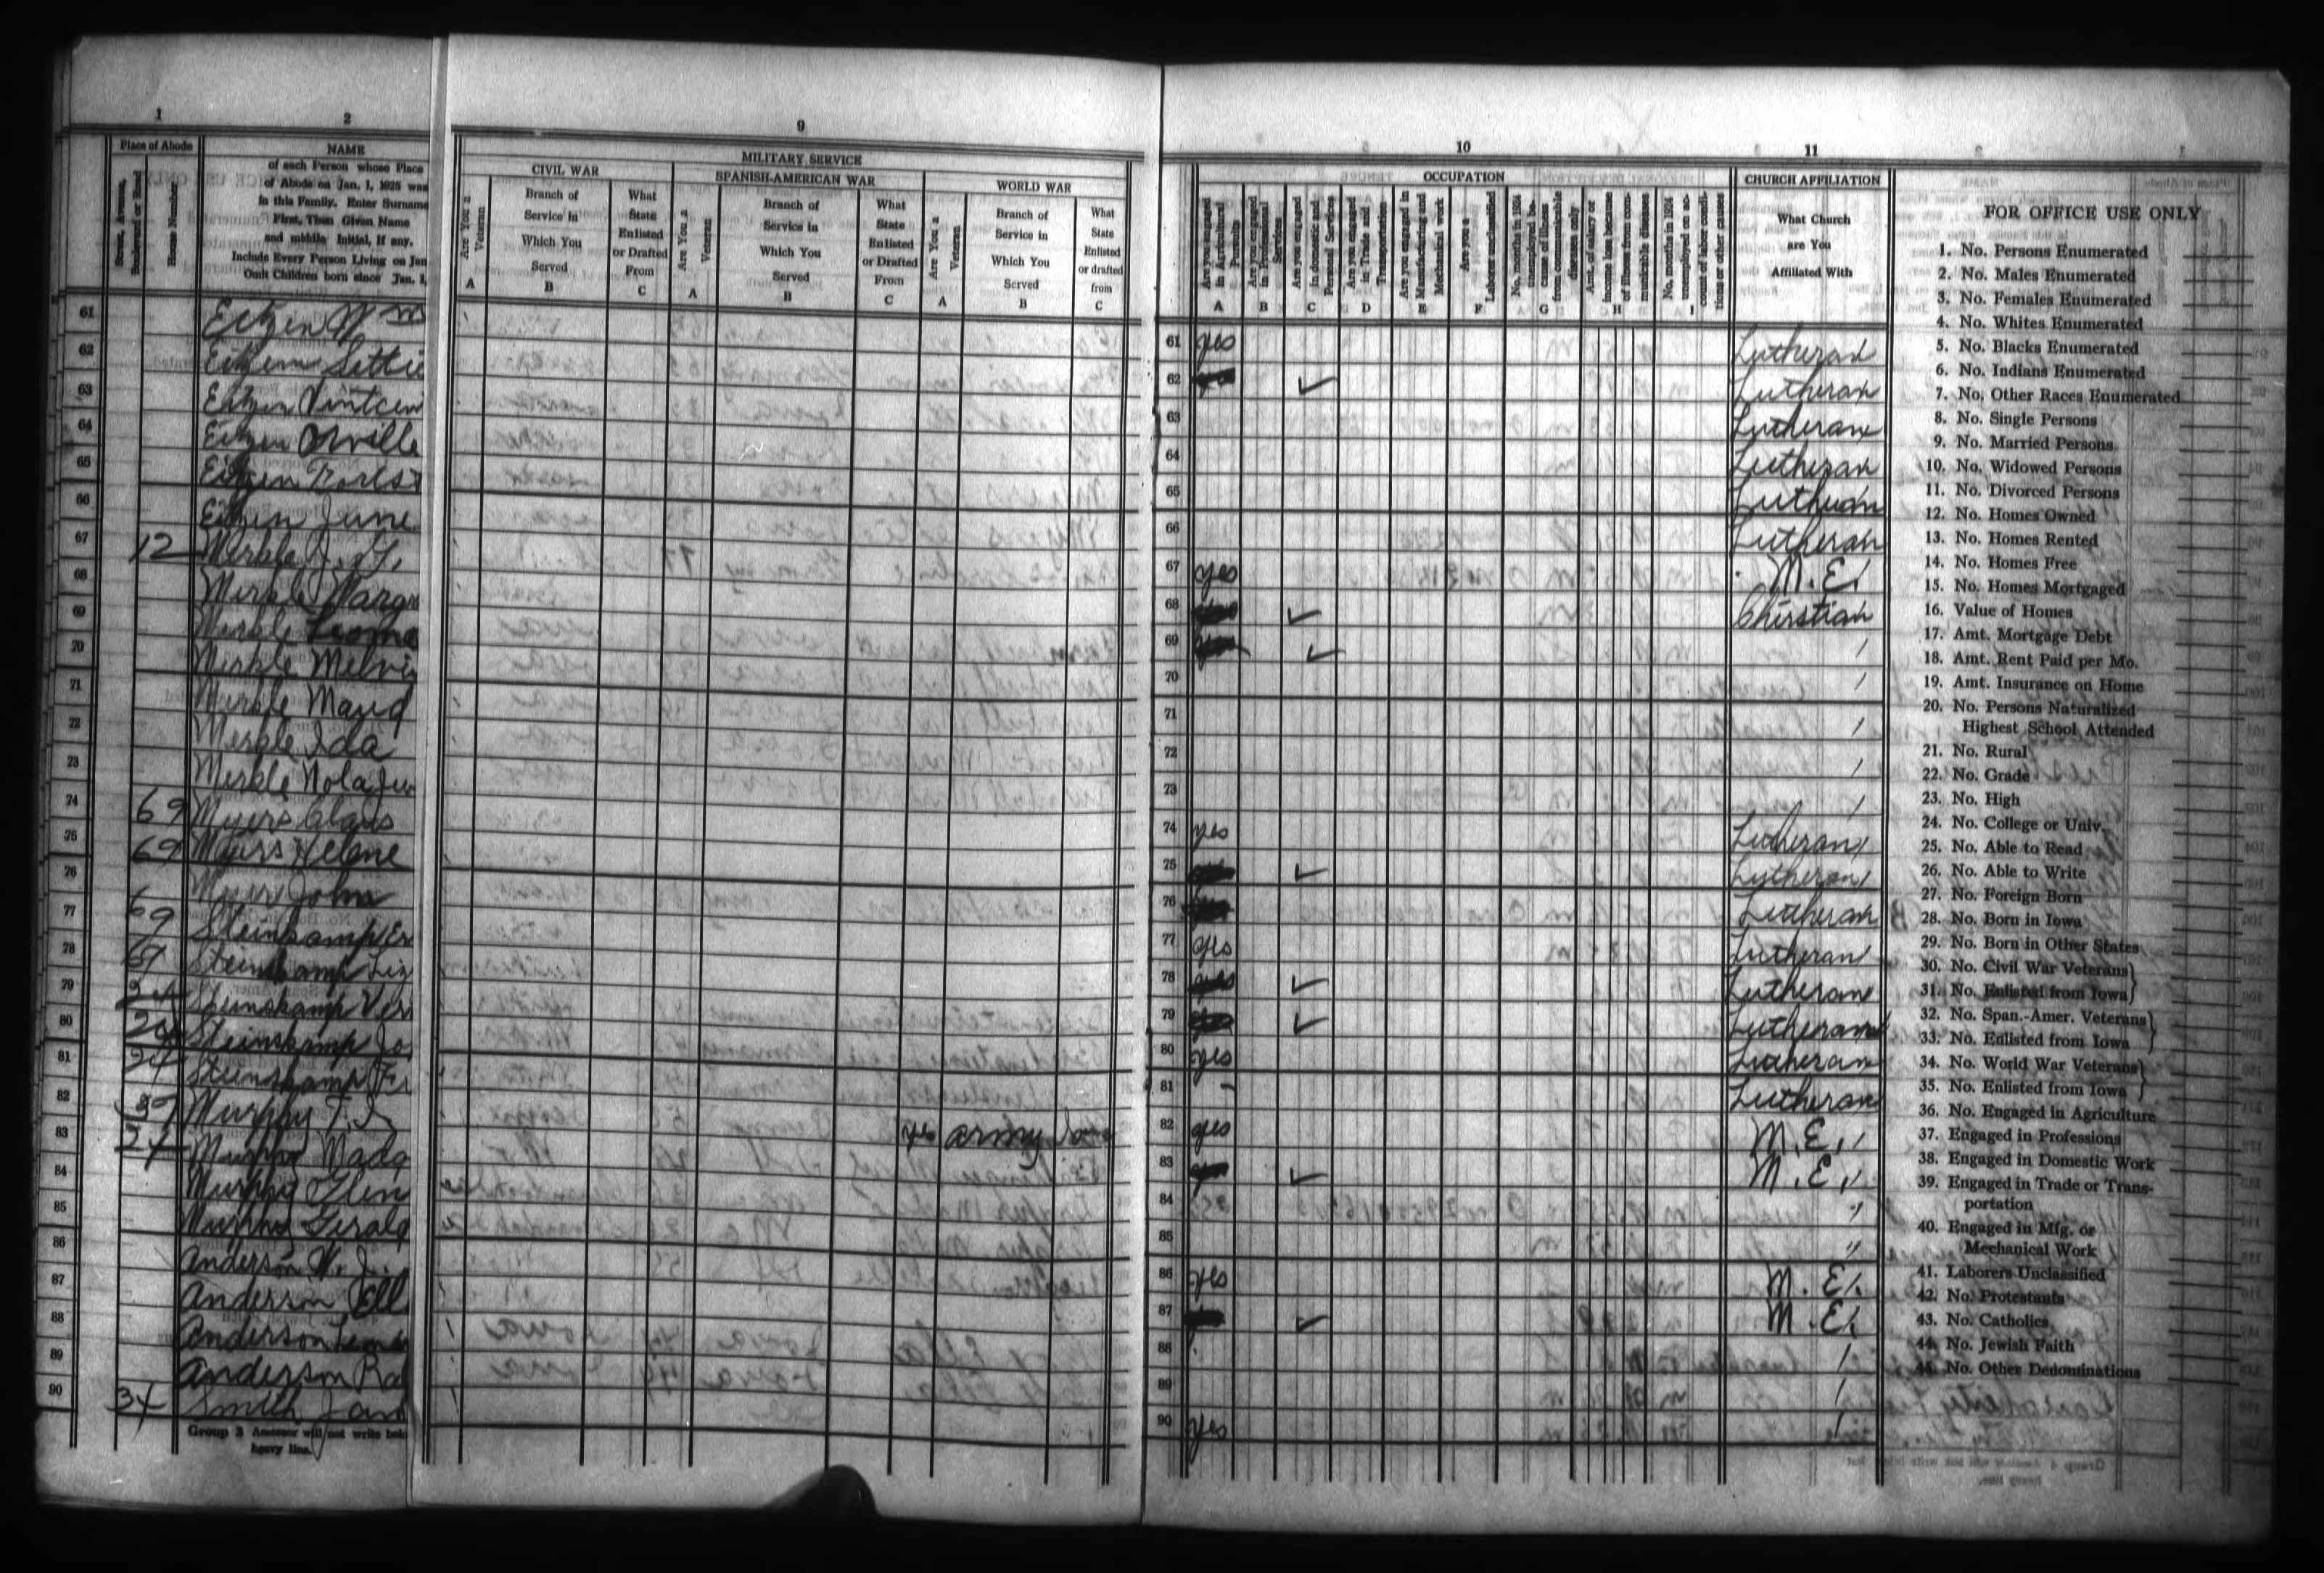 1
2
Place of Abode
Street, Avenue, Boulevard or Road
House Number
NAME
of each Person whose Place
of Abode on Jan. 1, 1925 was
in this Family. Enter Surname
First, Then Given Name
and middle Initial, if any.
Include Every Person Living on Jan
Omit Children born since Jan. 1,
61 Eitzen Wm
62 Eitzen Lettie
63 Eitzen Vintcen
64 Eitzen Orville
65 Eitzen Forest
66 Eitzen June
67 12 Merkle J. G.
68 Merkle Marg
69 Merkle Leona
70 Merkle Melvi
71 Merkle Maud
72 Merkle Ida
73 Merkle Nola
74 69 Myers Claus
75 69 Myers Helene
76 Myers John
77 69 Steinkamp Er
78 69 Steinkamp Liz
79 24 Steinskamp Ver
80 24 Steinskamp Jo
81 24 Steinskamp Fr
82 37 Murphy T. J.
83 24 Murphy Madg
84 Murphy Glen
85 Murphy Gerald
86 Anderson W. J.
87 Anderson Ell
88 Anderson Leona
89 Anderson Ra
90 34 Smith Jam
Group 3 Assessor will not write bel
heavy line.
9
MILITARY SERVICE
CIVIL WAR
SPANISH-AMERICAN WAR
WORLD WAR
Are You a Veteran
A
Branch of
Service in
Which You
Served
B
What
State
Enlisted
or Drafted
From
C
Are You a Veteran
A
Branch of
Service in
Which You
Served
B
What
State
Enlisted
or Drafted
From
C
Are You a Veteran
A
Branch of
Service in
Which You
Served
B
What
State
Enlisted
or drafted
from
C
yes army Iowa
10
11
OCCUPATION
CHURCH AFFILIATION
Are you engaged in Agricultural Pursuits
A
Are you engaged in Professional Services
B
Are you engaged in domestic and Personal Services
C
Are you engaged in Trade and Transportation
D
Are you engaged in Manufacturing and Mechanical work
E
Are you a Laborer unclassified
F
No. months in 1924 unemployed because of illness from communicable diseases only
G
Amt. of salary or income loss because of illness from communicable diseases
H
No. months in 1924 unemployed on account of labor conditions or other causes
I
What Church
are You
Affiliated With
61 yes Lutheran
62 ✓ Lutheran
63 Lutheran
64 Lutheran
65 Lutheran
66 Lutheran
67 yes M.E.
68 ✓ Christian
69 ✓
70
71
72
73
74 yes Lutheran
75 ✓ Lutheran
76 Lutheran
77 yes Lutheran
78 ✓ Lutheran
79 ✓ Lutheran
80 yes Lutheran
81 Lutheran
82 yes M.E.
83 ✓ M.E.
84 "
85 "
86 yes M.E.
87 ✓ M.E.
88
89
90 yes
FOR OFFICE USE ONLY
1. No. Persons Enumerated
2. No. Males Enumerated
3. No. Females Enumerated
4. No. Whites Enumerated
5. No. Blacks Enumerated
6. No. Indians Enumerated
7. No. Other Races Enumerated
8. No. Single Persons
9. No. Married Persons
10. No. Widowed Persons
11. No. Divorced Persons
12. No. Homes Owned
13. No. Homes Rented
14. No. Homes Free
15. No. Homes Mortgaged
16. Value of Homes
17. Amt. Mortgage Debt
18. Amt. Rent Paid per Mo.
19. Amt. Insurance on Home
20. No. Persons Naturalized
Highest School Attended
21. No. Rural
22. No. Grade
23. No. High
24. No. College or Univ.
25. No. Able to Read
26. No. Able to Write
27. No. Foreign Born
28. No. Born in Iowa
29. No. Born in Other States
30. No. Civil War Veterans
31. No. Enlisted from Iowa
32. No. Span.-Amer. Veterans
33. No. Enlisted from Iowa
34. No. World War Veterans
35. No. Enlisted from Iowa
36. No. Engaged in Agriculture
37. Engaged in Professions
38. Engaged in Domestic Work
39. Engaged in Trade or Trans-
portation
40. Engaged in Mfg. or
Mechanical Work
41. Laborers Unclassified
42. No. Protestants
43. No. Catholics
44. No. Jewish Faith
45. No. Other Denominations